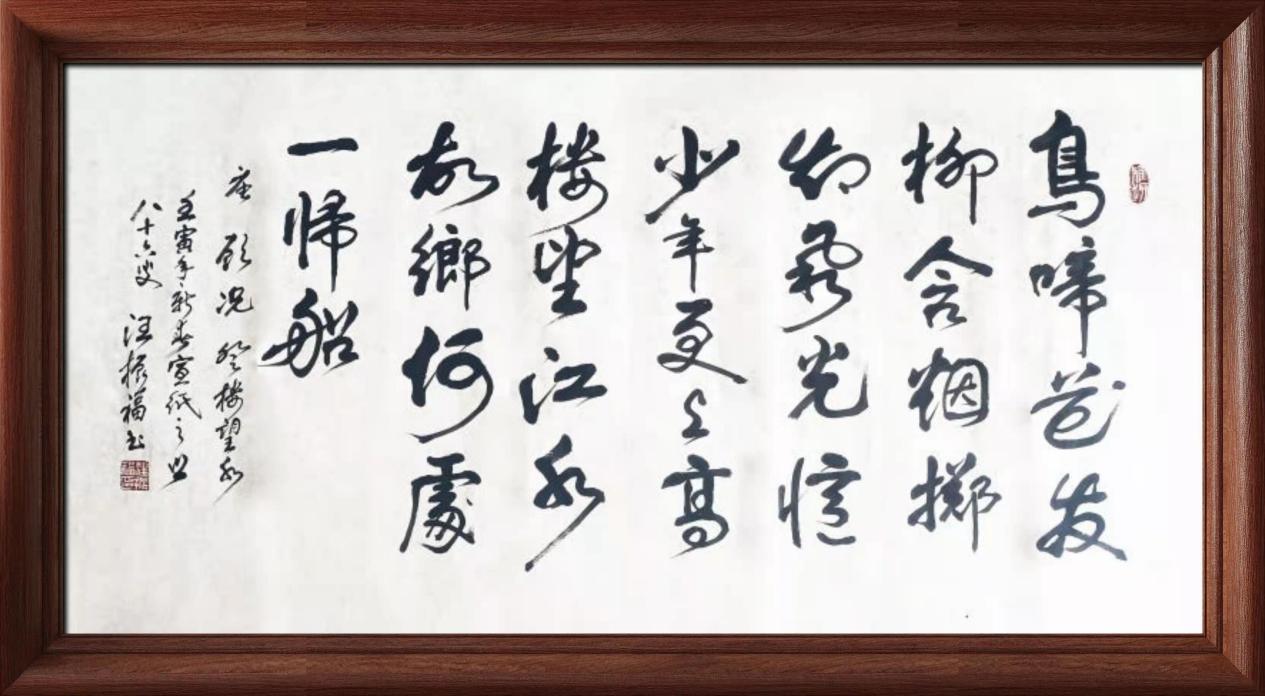 鳥啼花发
柳含烟掷
却風光憶
少年更上高
楼望江水
故鄉何處
一帰船
唐 顾况 登楼望水
壬寅年新春宣纸之
八十六叟 汪振福书